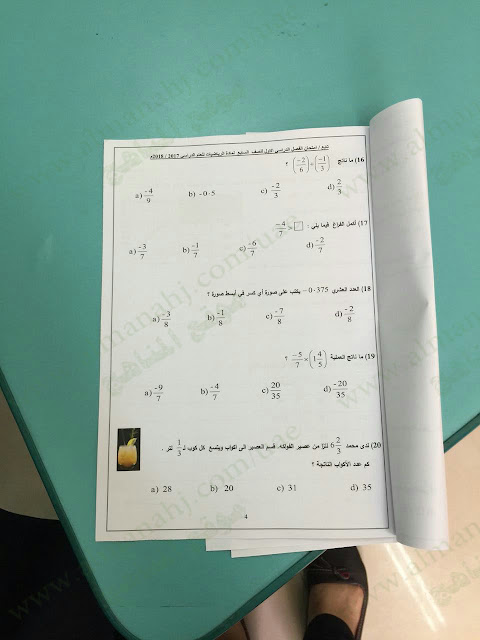 تابع / امتحان الفصل الدراسي الأول للصف السابع لمادة الرياضيات للعام الدراسي 2017 / 2018م
16) ما ناتج (-2/6) + (-1/3) ؟
a) -4/9 b) -0.5 c) -2/3 d) 2/3
17) أكمل الفراغ فيما يلي : -4/7 > □
a) -3/7 b) -1/7 c) -6/7 d) -2/7
18) العدد العشري -0.375 يكتب على صورة أي كسر في أبسط صورة ؟
a) -3/8 b) -1/8 c) -7/8 d) -2/8
19) ما ناتج العملية -5/7 × (1 4/5) ؟
a) -9/7 b) -4/7 c) 20/35 d) -20/35
20) لدى محمد 6 2/3 لترًا من عصير الفواكه. قسم العصير الى أكواب ويتسع كل كوب لـ 1/3 لتر .
كم عدد الأكواب الناتجة ؟
a) 28 b) 20 c) 31 d) 35
4
www.almanahj.com/uae
موقع المناهج